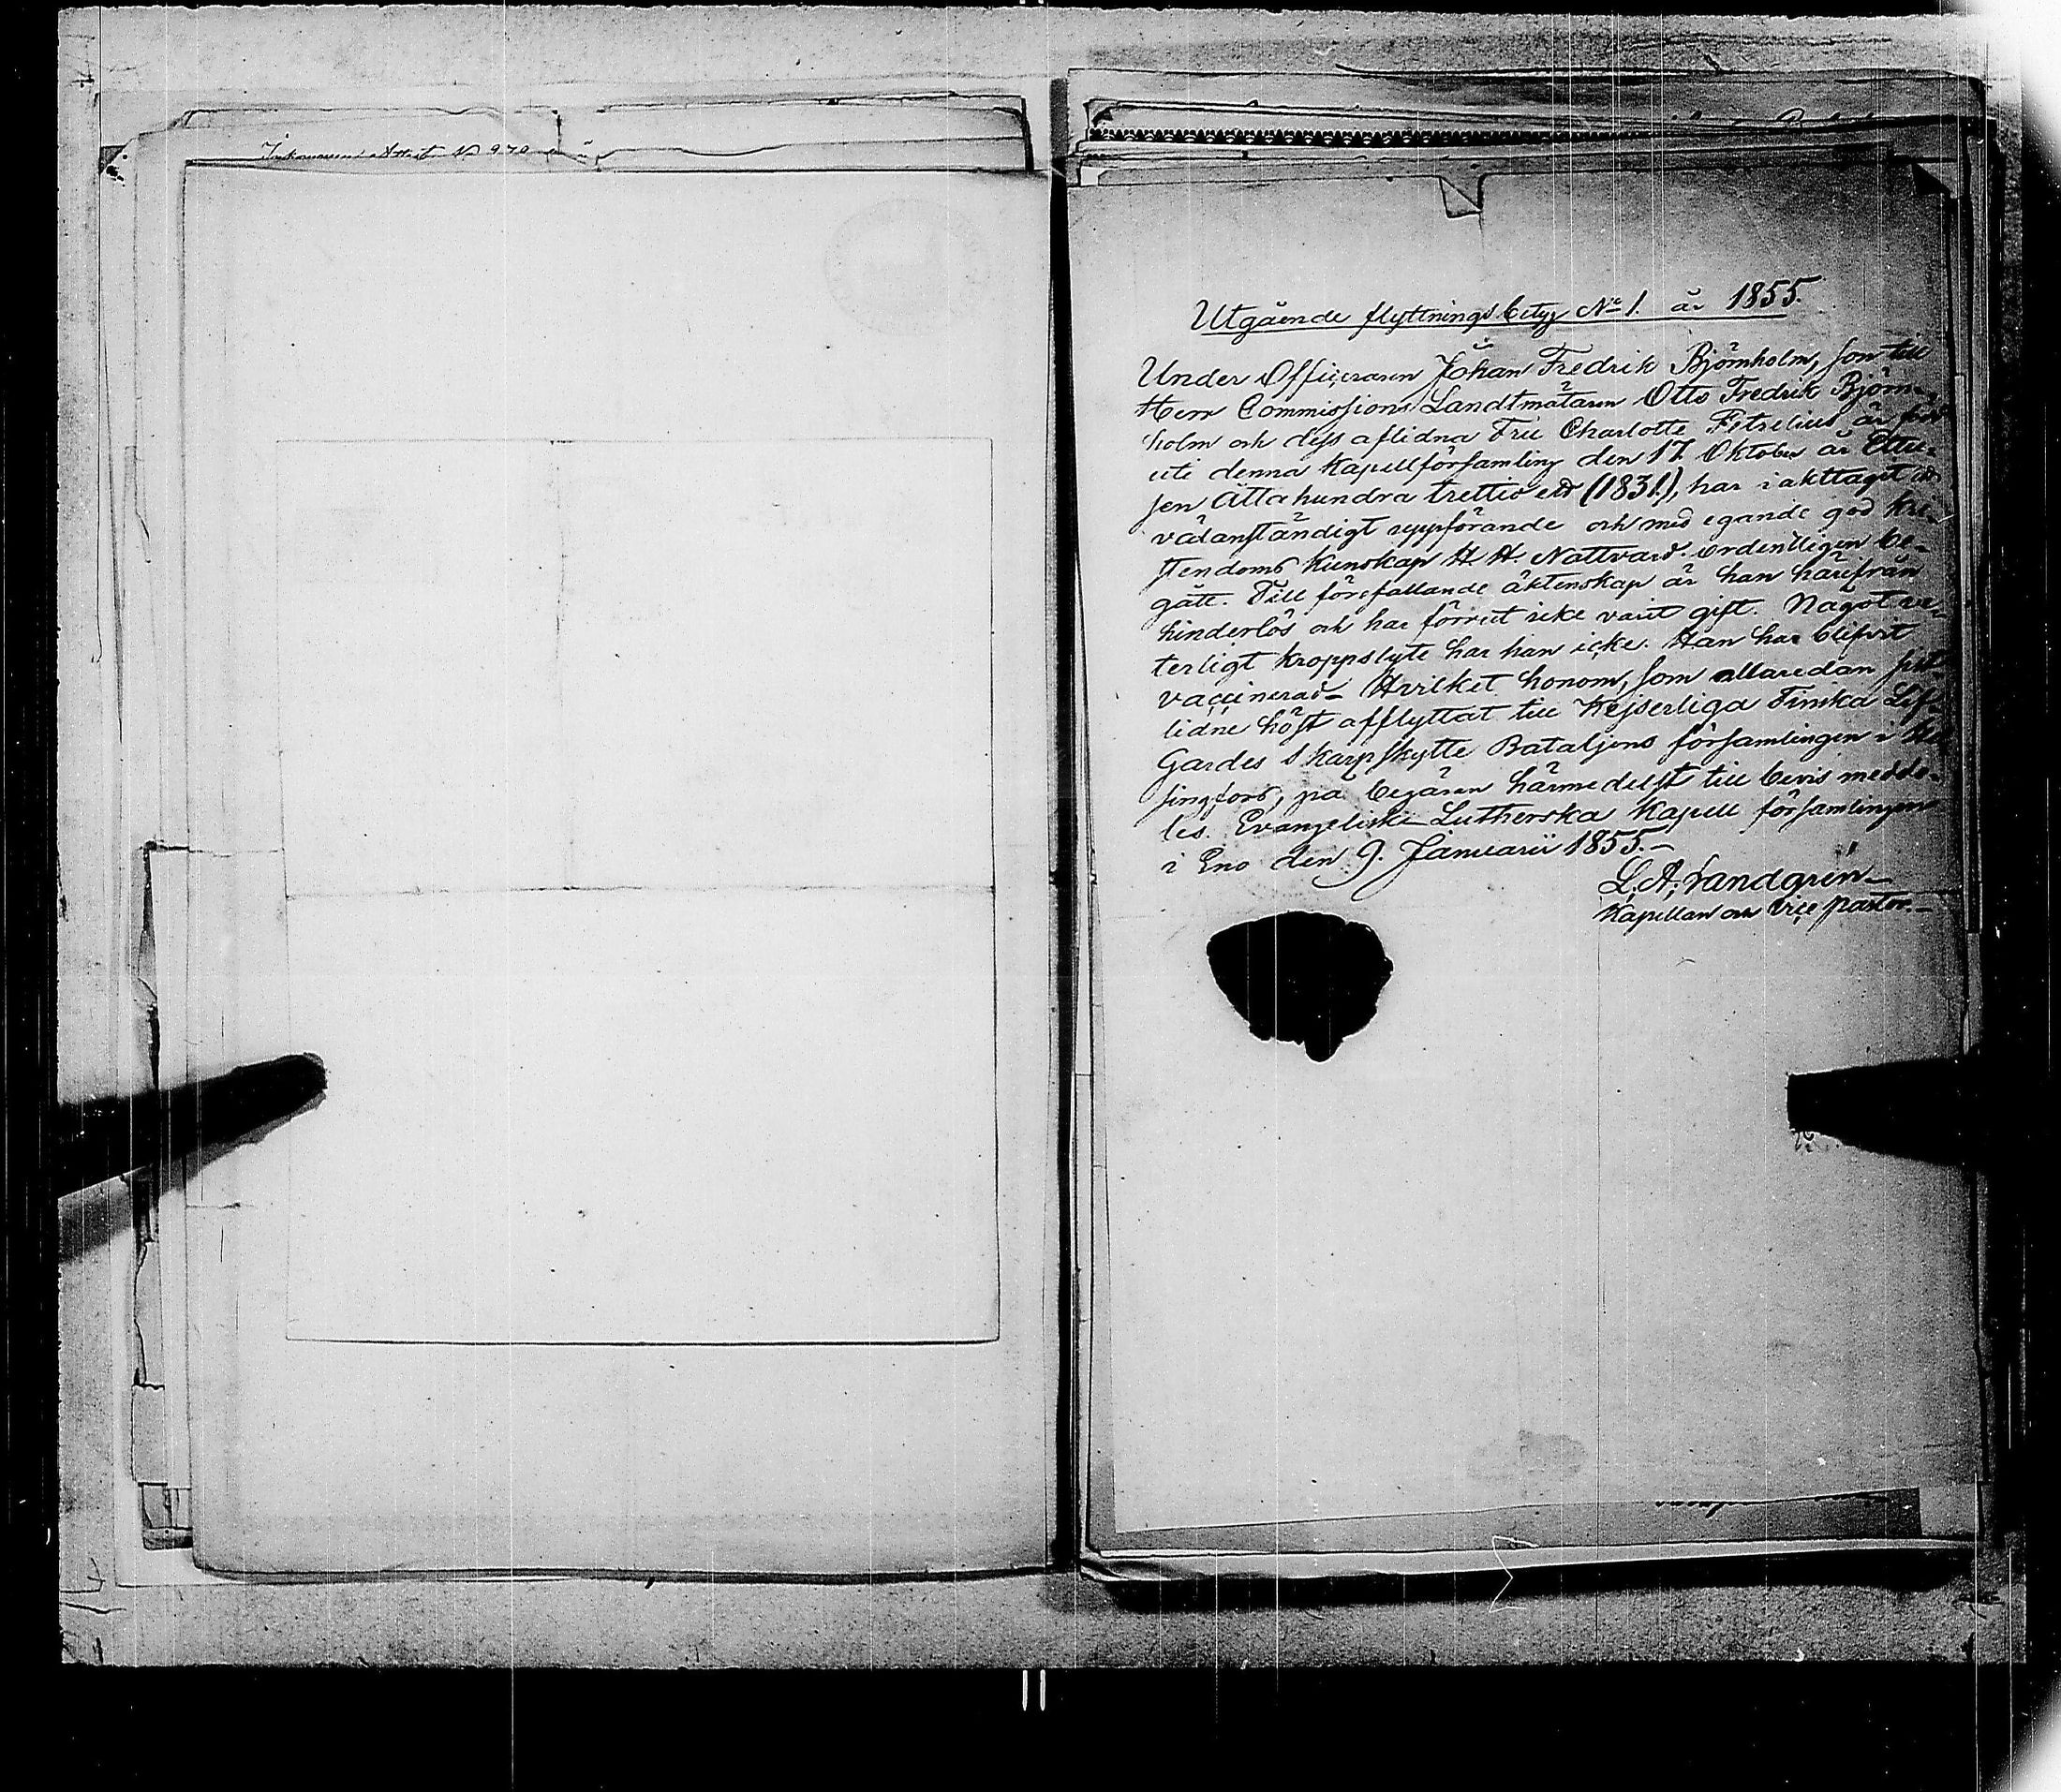 Inkommen: Attest No 970
Utgående flyttnings betyg No 1. år 1855.
Under Officeraren Johan Fredrik Björnholm, son till
Herr Commissions Landtmätaren Otto Fredrik Björn-
holm och dess aflidna Fru Charlotte Fitselius är född
uti denna Kapellförsamling den 17 Oktober år Ettu-
sen Åttahundra trettio ett (1831.), har iakttagit ett
välanständigt uppförande och med egande god kri-
stendoms kunskap H. H. Nattvard ordentligen be-
gått. Till förefallande äktenskap är han härifrån
hinderlös och har förrut icke varit gift. Något ve-
terligt kroppslyte har han icke. Han har blifvit
vaccinerad – Hvilket honom, som allaredan sist-
lidne höst afflyttat till Kejserliga Finska Lif-
Gardes Skarpskytte Bataljons församlingen i Hel
singfors, på begäran härmedelst till bevis medde-
les. Evangeliskt Lutherska Kapell församlingen
i Eno den 9. Januarii 1855.–
L. A. Sandgren–
Kapellan och Vice pastor.–